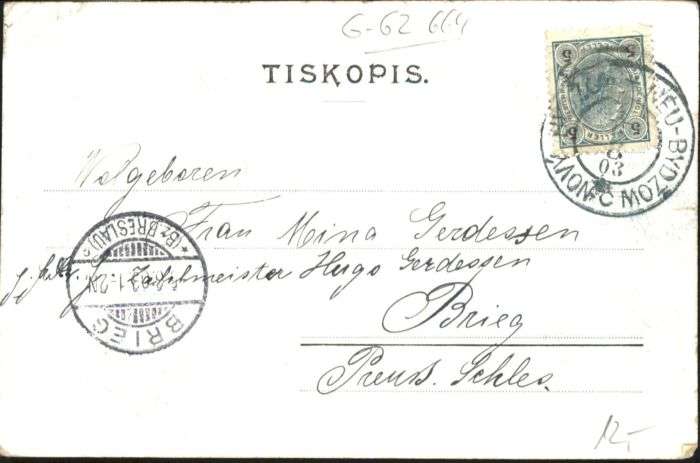 G-62 664
TISKOPIS.
5 5
HELLER
NEU-BYDŽOV
NOVÝ
03
Wolgeboren
Frau Mina Gerdessen
Zahlmeister Hugo Gerdessen
Brieg
Preuß. Schles.
*(Bz. BRESLAU)*
1-2N
BRIEG
12,-